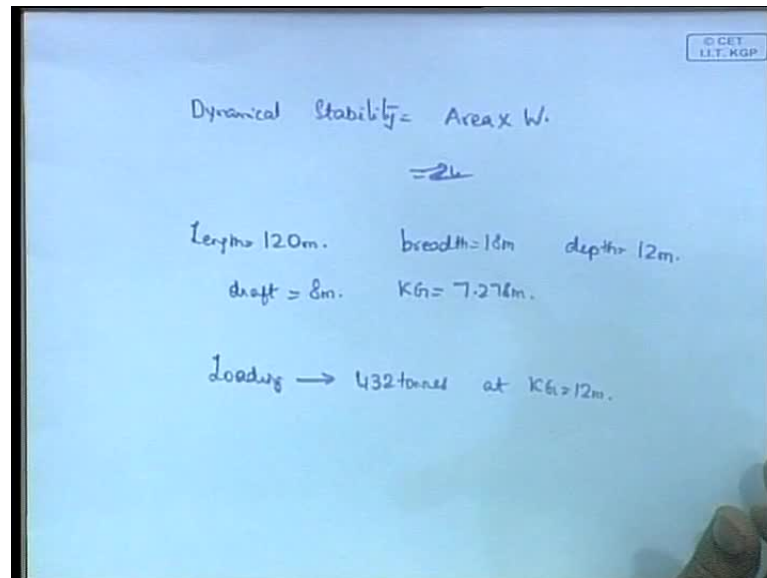 © CET
I.I.T. KGP
Dynamical Stability = Area x W.
Length = 120m. breadth = 18m depth = 12m.
draft = 8m. KG = 7.278m.
Loading → 432 tonnes at KG = 12m.